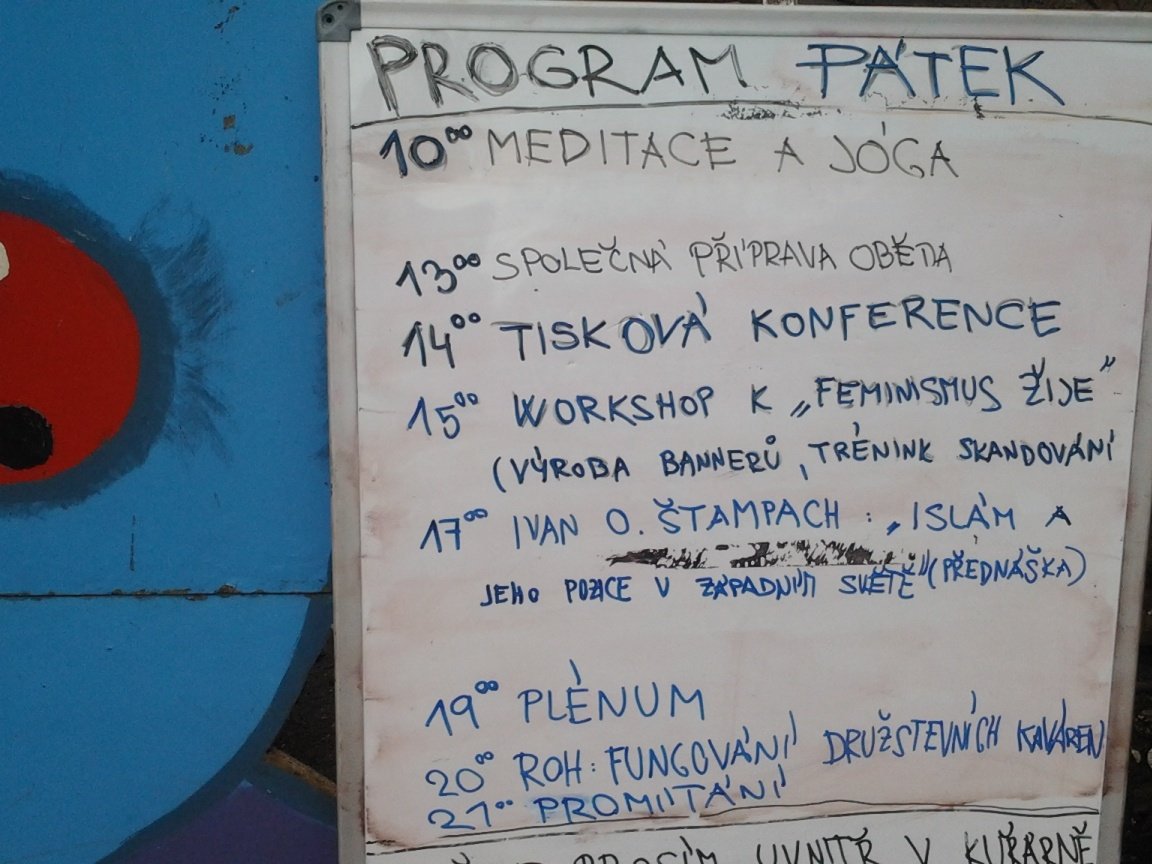 PROGRAM PÁTEK
10⁰⁰ MEDITACE A JÓGA
13⁰⁰ SPOLEČNÁ PŘÍPRAVA OBĚDA
14⁰⁰ TISKOVÁ KONFERENCE
15⁰⁰ WORKSHOP K „FEMINISMUS ŽIJE"
(VÝROBA BANNERŮ, TRÉNINK SKANDOVÁNÍ
17⁰⁰ IVAN O. ŠTAMPACH: „ISLÁM A
JEHO POZICE V ZÁPADNÍM SVĚTĚ" (PŘEDNÁŠKA)
19⁰⁰ PLÉNUM
20⁰⁰ ROH: FUNGOVÁNÍ DRUŽSTEVNÍCH KAVÁREN
21⁰⁰ PROMÍTÁNÍ
PROSÍM UVNITŘ V